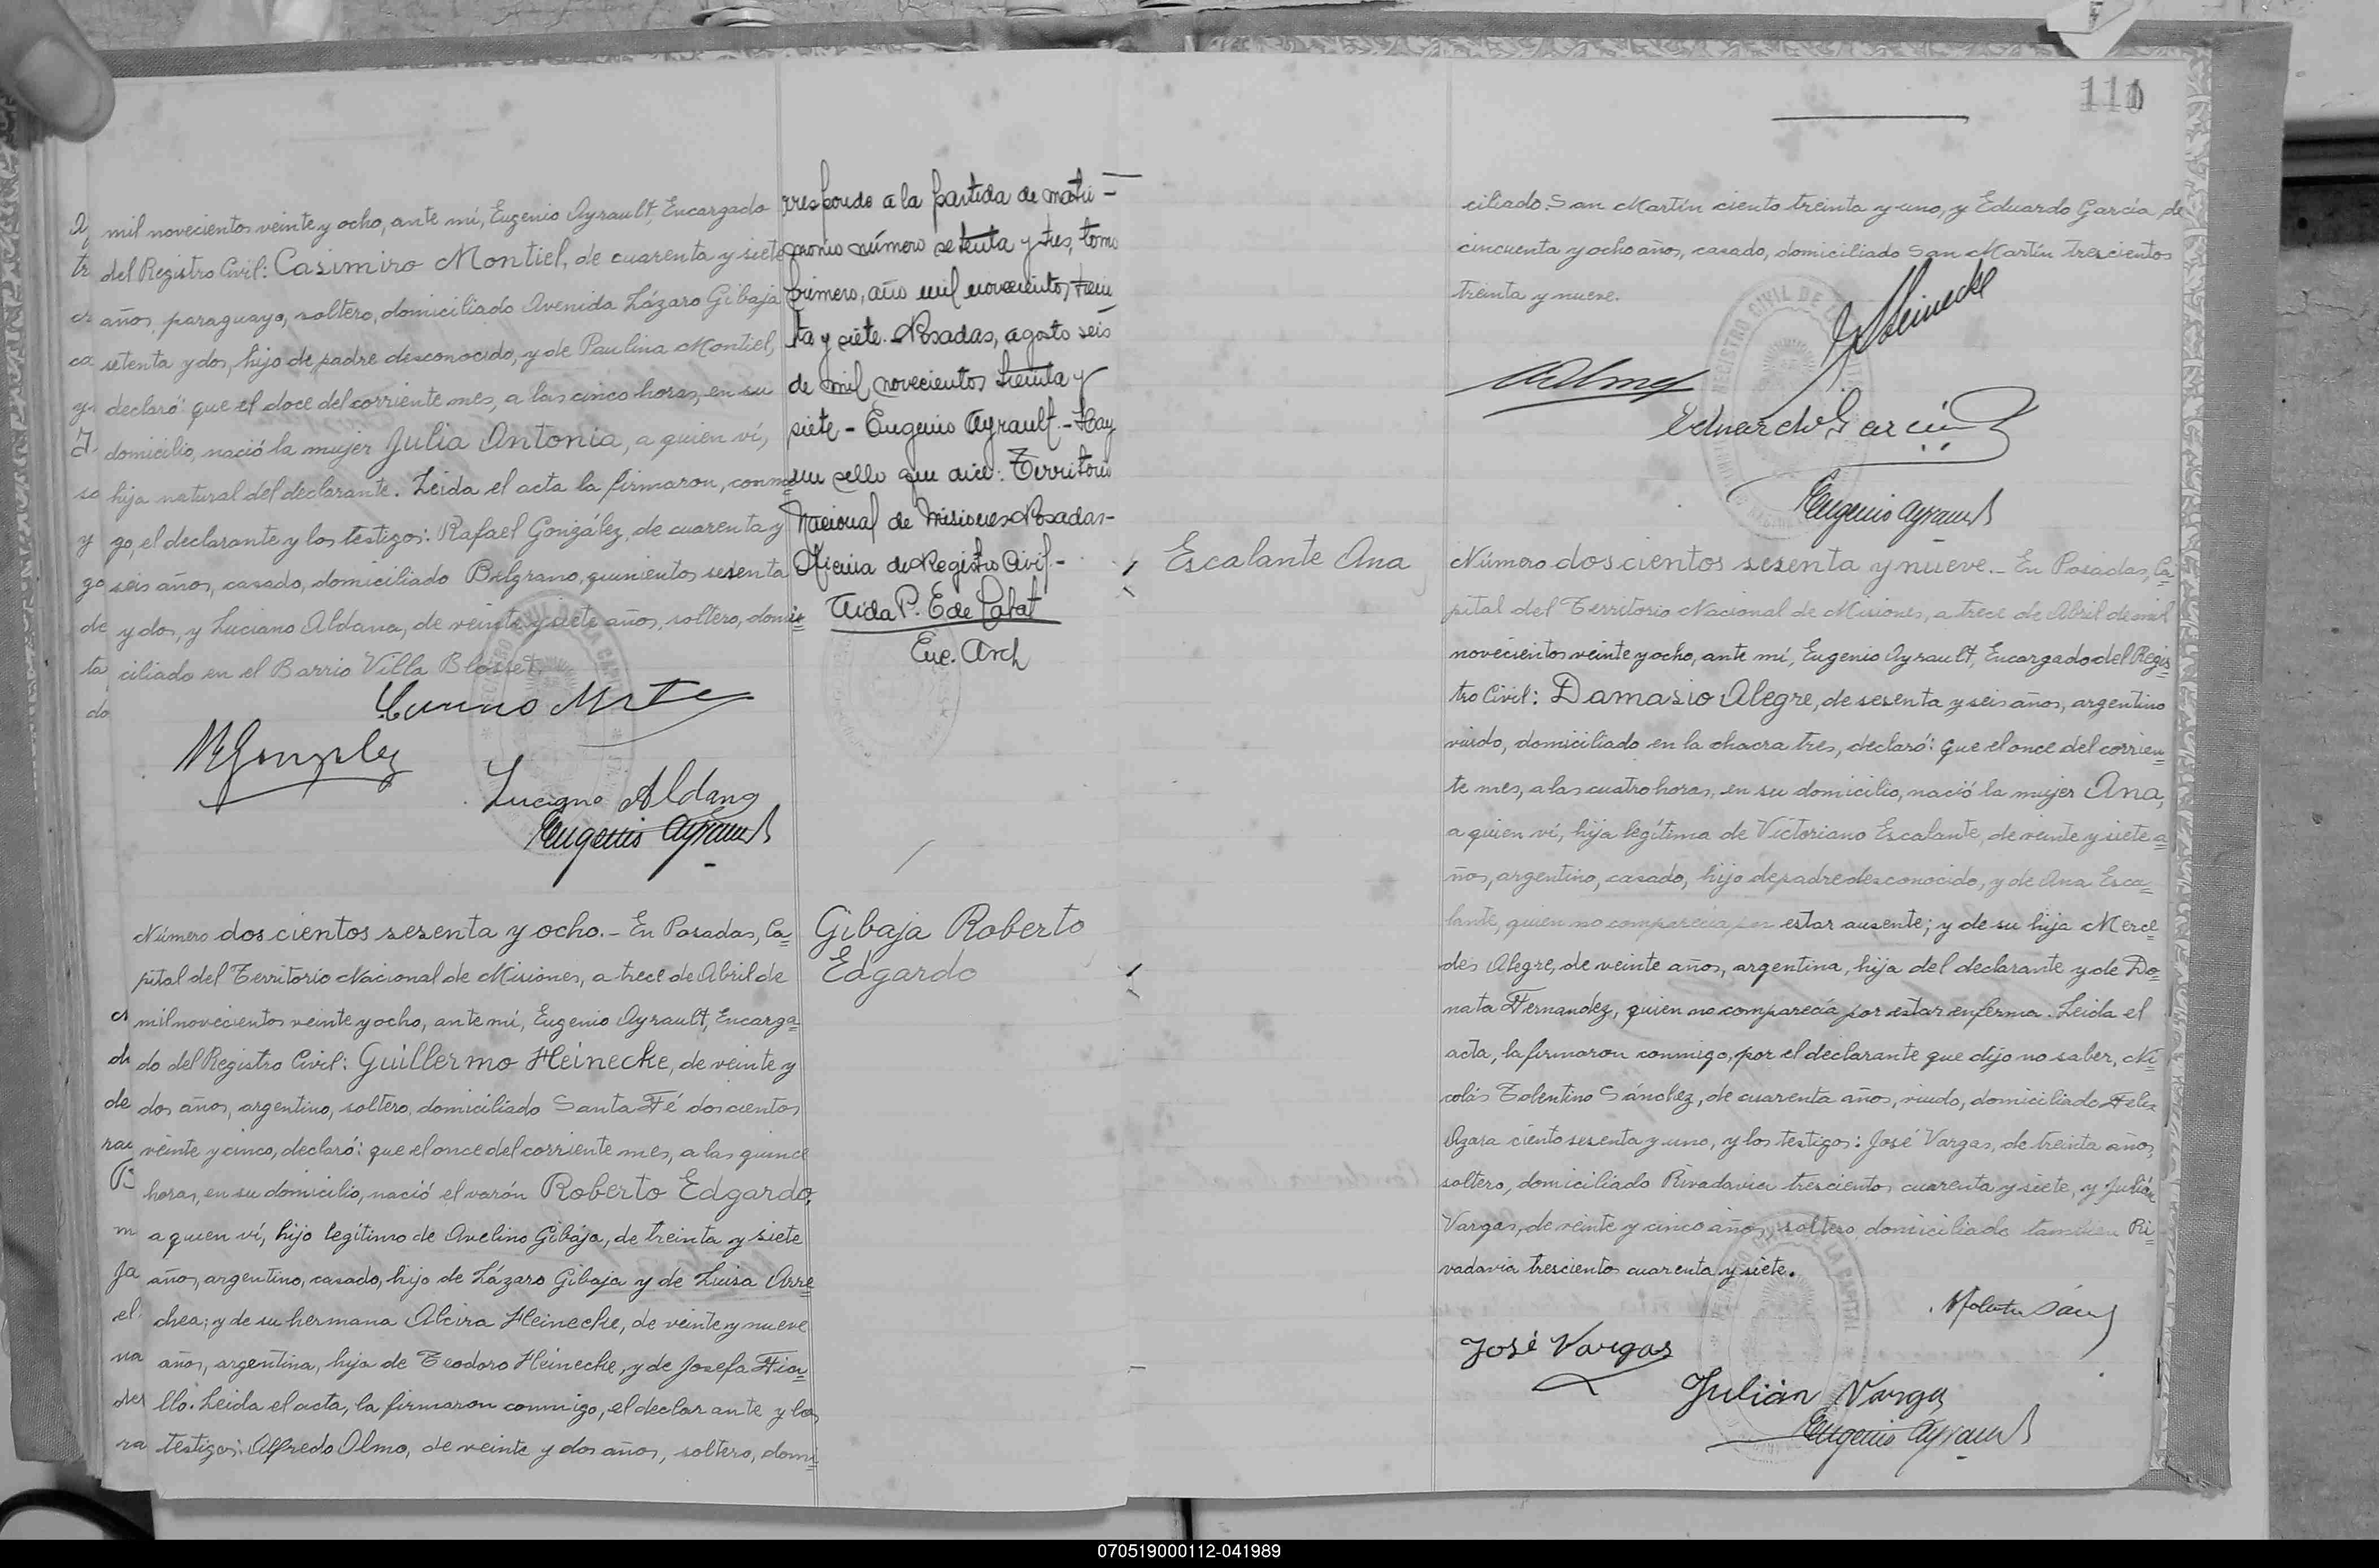 mil novecientos veinte y ocho, ante mí, Eugenio Ayrault, Encargado
del Registro Civil: Casimiro Montiel, de cuarenta y siete
años, paraguayo, soltero, domiciliado Avenida Lázaro Gibaja
setenta y dos, hijo de padre desconocido, y de Paulina Montiel,
declaró: que el doce del corriente mes, a las cinco horas, en su
domicilio, nació la mujer Julia Antonia, a quien ví,
hija natural del declarante. Leida el acta la firmaron, conmi
go, el declarante y los testigos: Rafael González, de cuarenta y
seis años, casado, domiciliado Belgrano, quinientos sesenta
y dos, y Luciano Aldana, de veinte y siete años, soltero, domi=
ciliado en el Barrio Villa Blosset.
Luciano Aldana
Eugenio Ayrault
rresponde a la partida de matri-
monio número setenta y tres, tomo
primero, año mil novecientos trein
ta y siete. Posadas, agosto seis
de mil novecientos treinta y
siete - Eugenio Ayrault. - Hay
un sello que dice: Territorio
Nacional de Misiones Posadas-
Oficina de Registro Civil.-
Enc. Arch
Número doscientos sesenta y ocho.- En Posadas, Ca=
pital del Territorio Nacional de Misiones, a trece de Abril de
mil novecientos veinte y ocho, ante mí, Eugenio Ayrault, Encarga=
do del Registro Civil: Guillermo Heinecke, de veinte y
dos años, argentino, soltero, domiciliado Santa Fé doscientos
veinte y cinco, declaró: que el once del corriente mes, a las quince
horas, en su domicilio, nació el varón Roberto Edgardo,
a quien ví, hijo legítimo de Avelino Gibaja, de treinta y siete
años, argentino, casado, hijo de Lázaro Gibaja y de Luisa Arre=
chea; y de su hermana Alcira Heinecke, de veinte y nueve
años, argentina, hija de Teodoro Heinecke, y de Josefa
llo. Leida el acta, la firmaron conmigo, el declarante y los
testigos: Alfredo Olmo, de veinte y dos años, soltero, domi=
Gibaja Roberto
Edgardo
110
ciliado San Martín ciento treinta y uno, y Eduardo García, de
cincuenta y ocho años, casado, domiciliado San Martín trescientos
treinta y nueve.
Heinecke
Eduardo García
Eugenio Ayrault
Escalante Ana
Número doscientos sesenta y nueve.- En Posadas, Ca=
pital del Territorio Nacional de Misiones, a trece de Abril de mil
novecientos veinte y ocho, ante mí, Eugenio Ayrault, Encargado del Regis
tro Civil: Damasio Alegre, de sesenta y seis años, argentino
viudo, domiciliado en la chacra tres, declaró: que el once del corrien=
te mes, a las cuatro horas, en su domicilio, nació la mujer Ana,
a quien ví, hija legítima de Victoriano Escalante, de veinte y siete a=
ños, argentino, casado, hijo de padre desconocido, y de Ana Esca=
lante, quien no comparecía por estar ausente; y de su hija Merce=
des Alegre, de veinte años, argentina, hija del declarante y de Do=
nata Fernandez, quien no comparecía por estar enferma. Leida el
acta, la firmaron conmigo, por el declarante que dijo no saber, Ni
colás Tolentino Sánchez, de cuarenta años, viudo, domiciliado Felix
Azara ciento sesenta y uno, y los testigos: José Vargas, de treinta años,
soltero, domiciliado Rivadavia trescientos cuarenta y siete, y Julián
Vargas, de veinte y cinco años, soltero domiciliado tambien Ri=
vadavia trescientos cuarenta y siete.
José Vargas
Julián Vargas
Eugenio Ayrault
070519000112-041989